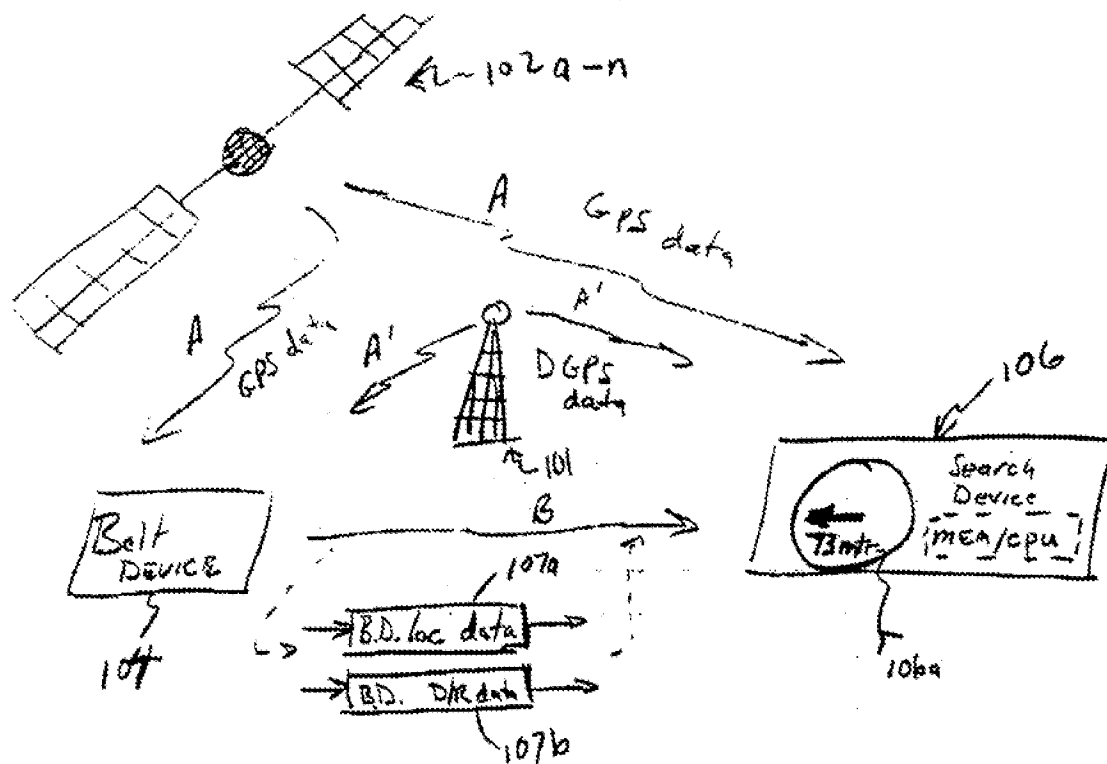 102a-n
A
GPS data
A
GPS data
A'
A'
DGPS
data
101
106
Search
Device
MEM/CPU
13mtr
106a
Belt
DEVICE
104
B
107a
B.D. loc data
B.D. D/R data
107b